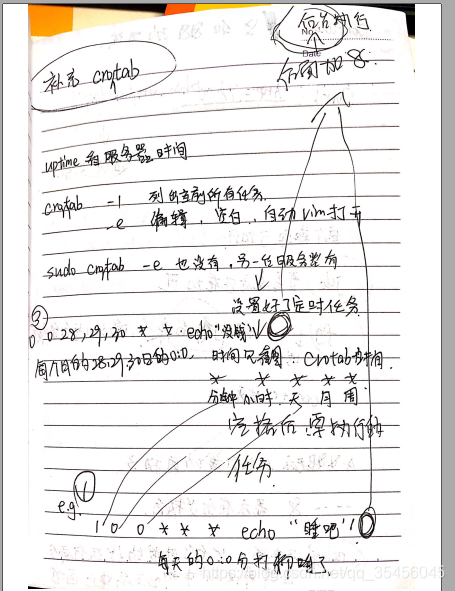 后台执行
No.
Date
后面加 &
补充 crontab
uptime 看服务器时间
crontab -l 列出当前所有任务
-e 编辑,空白,自动vim打开
sudo crontab -e 也没有,另一台服务器有
设置好了定时任务
②
0 0 28,29,30 * * echo "没钱"
每个月的28,29,30日的0:0. 时间见截图: Crontab 时间
* * * * *
分钟 小时 天 月 周
空格后 要执行的
任务
e.g. ①
1 0 0 * * * echo "睡吧"
每天的0:0分打
https://blog.csdn.net/qq_35456045